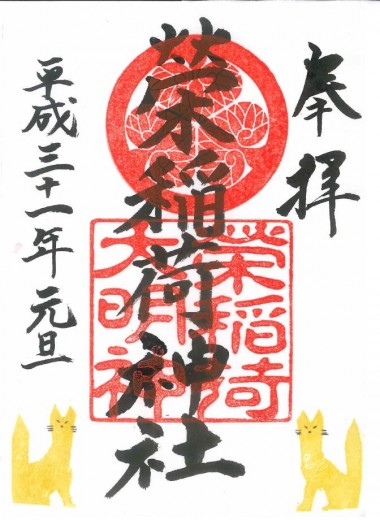 奉拝
榮稲荷神社
榮稲荷
大明神
平成三十一年元旦